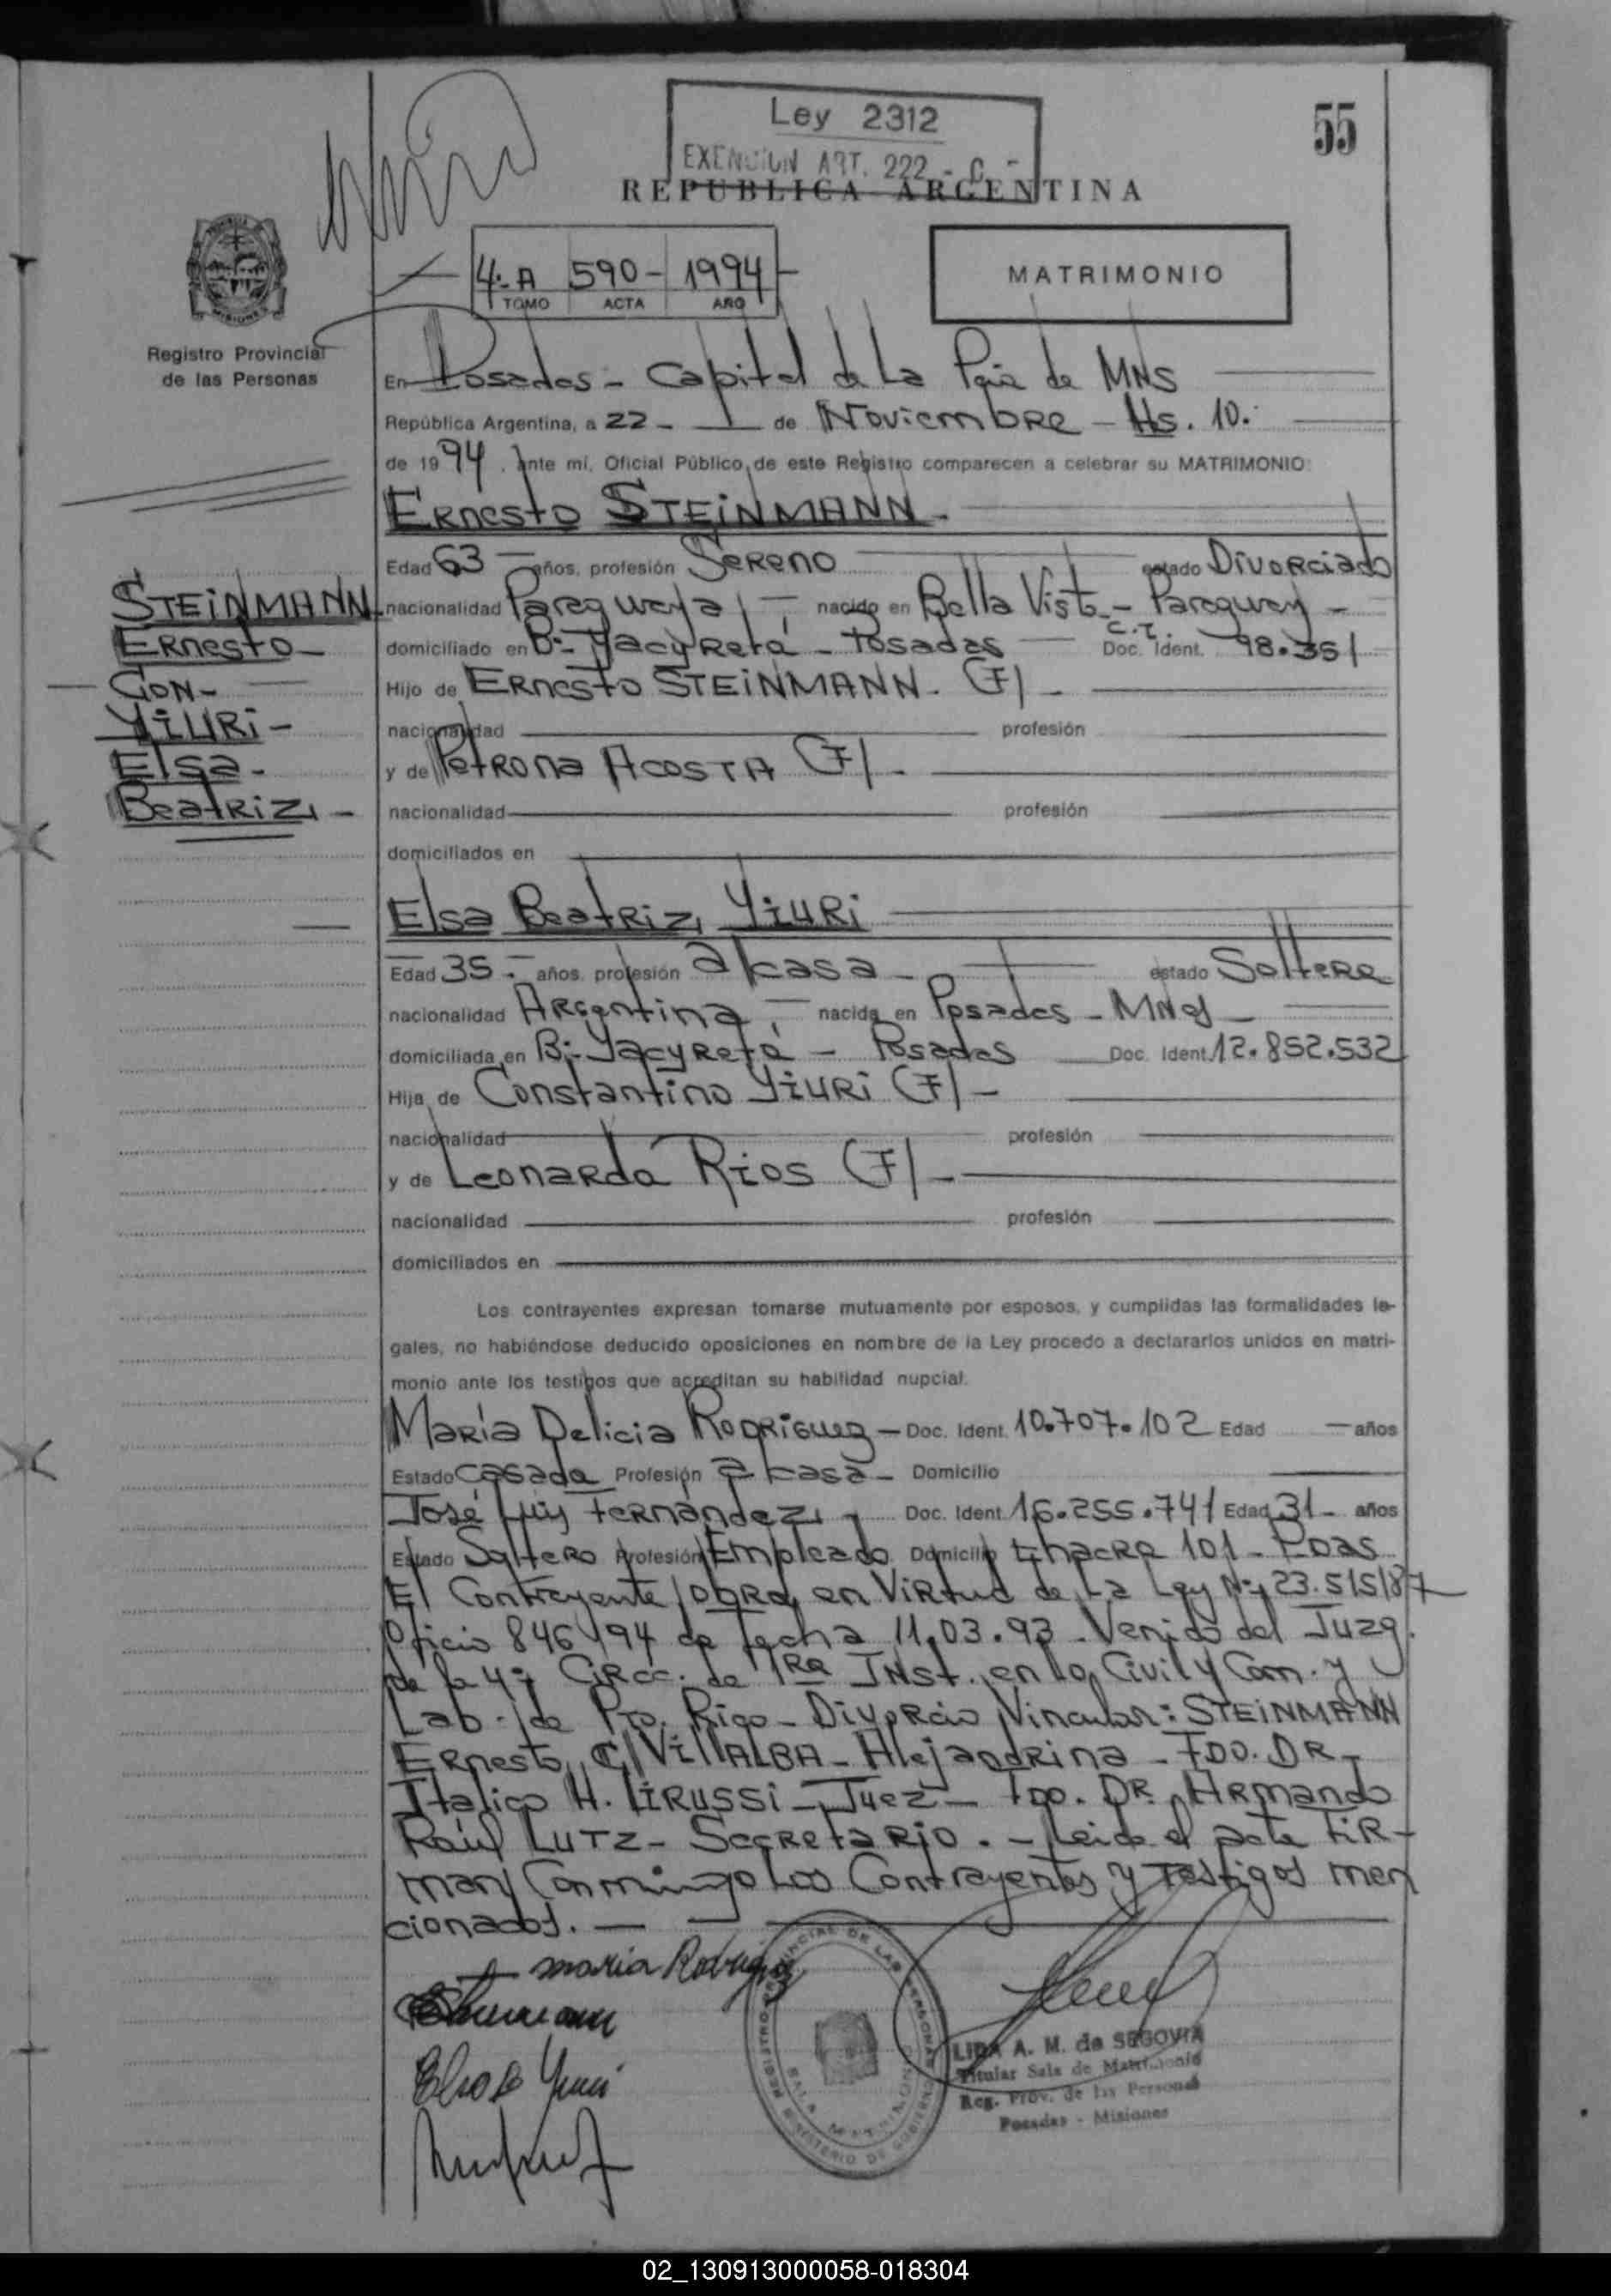 Ley 2312
EXENCION ART. 222 - C. -
55
REPUBLICA ARGENTINA
4º A 590 - 1994
TOMO ACTA AÑO
MATRIMONIO
Registro Provincial
de las Personas
En Posadas - Capital de La Pcia de MNS
República Argentina, a 22 - de Noviembre - Hs. 10.-
de 1994, ante mí, Oficial Público de este Registro comparecen a celebrar su MATRIMONIO:
Ernesto STEINMANN -
Edad 63 - años, profesión Sereno estado Divorciado
nacionalidad Paraguaya, - nacido en Bella Vista - Paraguay -
domiciliado en Bº Yacyretá - Posadas C.I. Doc. Ident. 98.351
Hijo de Ernesto STEINMANN. (F) -
nacionalidad profesión
y de Petrona ACOSTA (F) -
nacionalidad profesión
domiciliados en
STEINMANN
Ernesto -
CON -
YIURI -
Elsa -
Beatriz, -
Elsa Beatriz, YIURI
Edad 35 - años, profesión a/casa - estado Soltera
nacionalidad Argentina, - nacida en Posadas - Mnes -
domiciliada en Bº Yacyretá - Posadas Doc. Ident. 12.852.532
Hija de Constantino YIURI (F) -
nacionalidad profesión
y de Leonarda Rios (F) -
nacionalidad profesión
domiciliados en
Los contrayentes expresan tomarse mutuamente por esposos, y cumplidas las formalidades le-
gales, no habiéndose deducido oposiciones en nombre de la Ley procedo a declararlos unidos en matri-
monio ante los testigos que acreditan su habilidad nupcial.
María Delicia Rodriguez - Doc. Ident. 10.707.102 Edad - años
Estado Casada Profesión a/casa - Domicilio
José Luis Fernández, Doc. Ident. 16.255.741 Edad 31 - años
Estado Soltero Profesión Empleado Domicilio Chacra 101 - Pdas
El Contrayente obra en virtud de La Ley Nº 23.515/87
Oficio 846/94 de fecha 11.03.93 - Venido del Juzg.
de la 4ª Circ. de 1ra Inst. en lo Civil y Com. y
Lab. de Pto. Rico - Divorcio Vincular: STEINMANN
Ernesto C/ VILLALBA - Alejandrina - FDO. DR.
Italico H. LIRUSSI - Juez - Fdo. DR. Armando
Raúl LUTZ - Secretario. - Leida el acta FIR-
man Conmigo Los Contrayentes y Testigos men
cionados. -
maria Rodriguez
Elsa B Yiuri
REGISTRO PROVINCIAL DE LAS PERSONAS
MINISTERIO DE GOBIERNO
SALA MATRIMONIO
LIDA A. M. de SEGOVIA
Titular Sala de Matrimonio
Reg. Prov. de las Personas
Posadas - Misiones
02_130913000058-018304